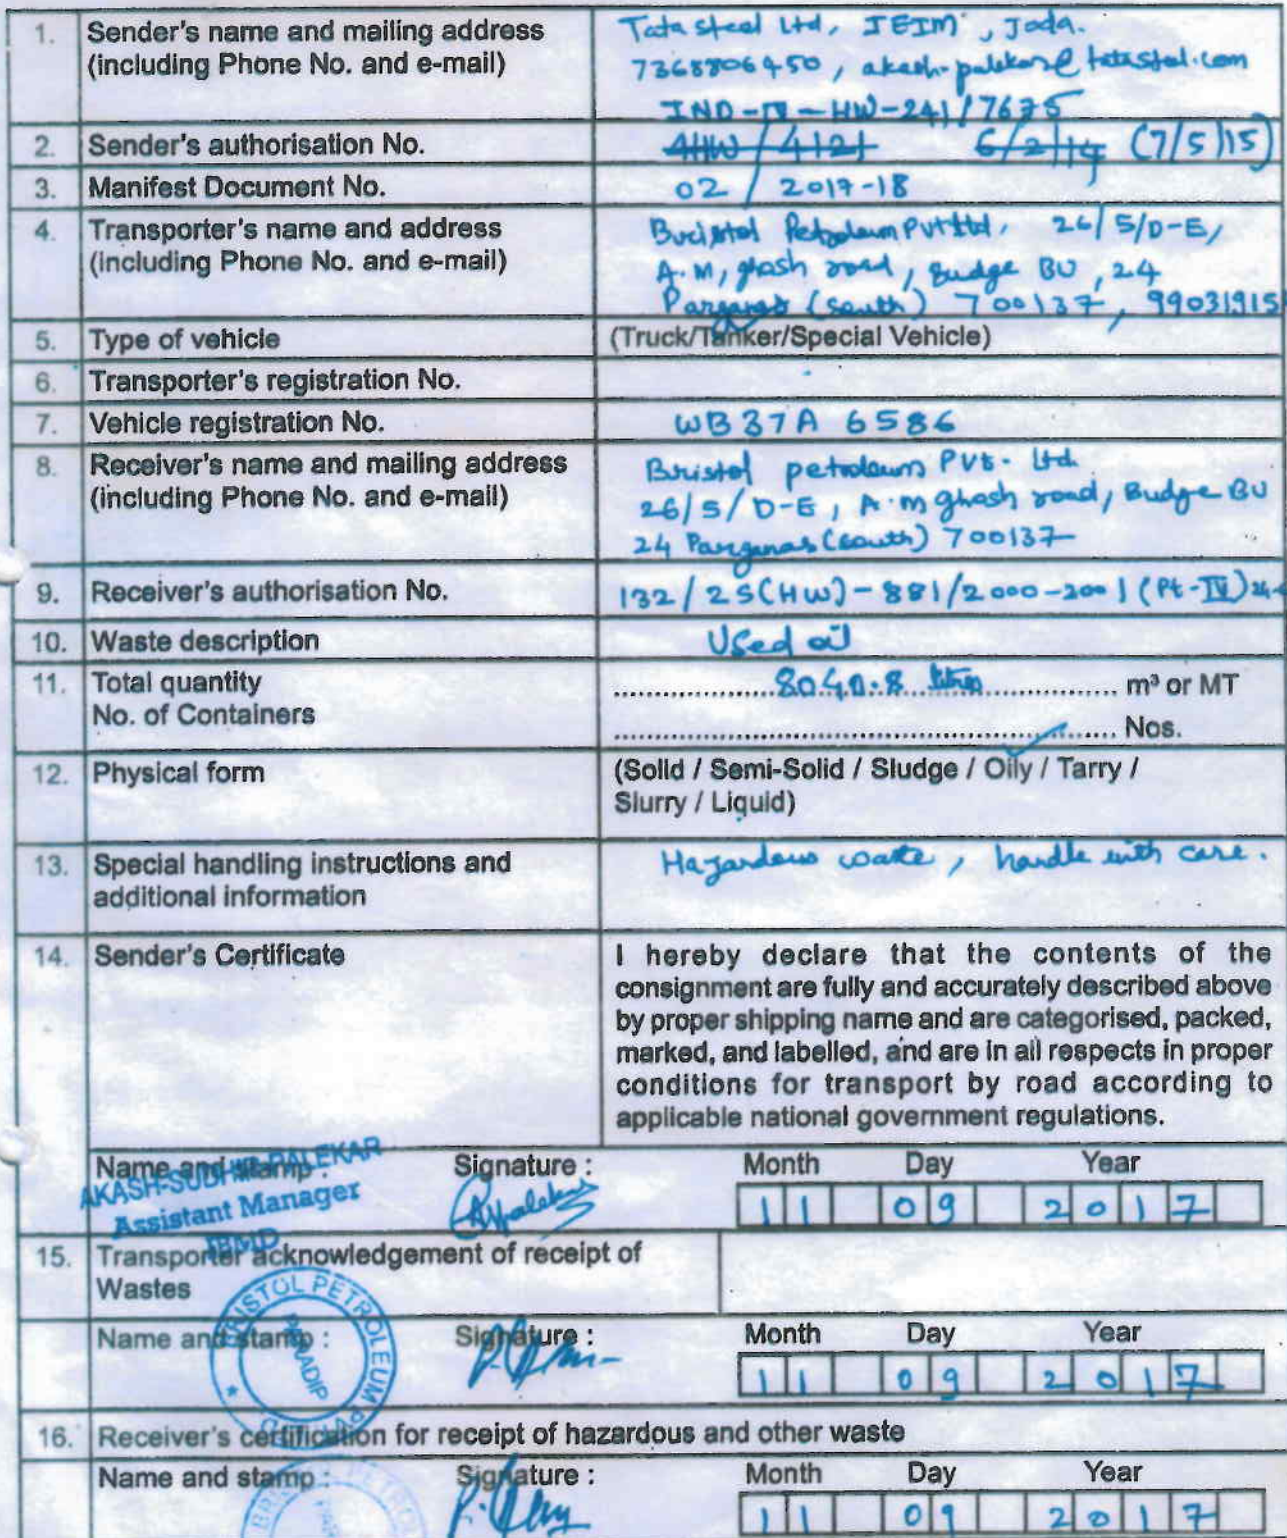 1. Sender's name and mailing address
(including Phone No. and e-mail)
Tata Steel Ltd, JEIM, Joda.
7368806450, akash.palekar@tatasteel.com
IND-IV-HW-241/7675
2. Sender's authorisation No. 4HW/4121 6/2/14 (7/5/15)
3. Manifest Document No. 02 / 2017-18
4. Transporter's name and address
(including Phone No. and e-mail)
Bristol Petroleum Pvt Ltd, 26/5/D-E,
A.M, ghosh road, Budge BU, 24
Parganas (South) 700137, 99031915
5. Type of vehicle (Truck/Tanker/Special Vehicle)
6. Transporter's registration No.
7. Vehicle registration No. WB37A 6586
8. Receiver's name and mailing address
(including Phone No. and e-mail)
Bristol petroleum Pvt. Ltd.
26/5/D-E, A.M ghosh road, Budge BU
24 Parganas (South) 700137
9. Receiver's authorisation No. 132/2S(HW)-881/2000-2001 (Pt-IV)
10. Waste description Used oil
11. Total quantity 8040.8 litres m³ or MT
No. of Containers Nos.
12. Physical form (Solid / Semi-Solid / Sludge / Oily / Tarry /
Slurry / Liquid)
13. Special handling instructions and
additional information
Hazardous waste, handle with care.
14. Sender's Certificate
I hereby declare that the contents of the
consignment are fully and accurately described above
by proper shipping name and are categorised, packed,
marked, and labelled, and are in all respects in proper
conditions for transport by road according to
applicable national government regulations.
Name and stamp : Signature : Month Day Year
AKASH SUDHIR PALEKAR
Assistant Manager
11 09 2017
15. Transporter acknowledgement of receipt of
Wastes
BRISTOL PETROLEUM PVT LTD
PARADIP
Name and stamp : Signature : Month Day Year
11 09 2017
16. Receiver's certification for receipt of hazardous and other waste
Name and stamp : Signature : Month Day Year
11 09 2017